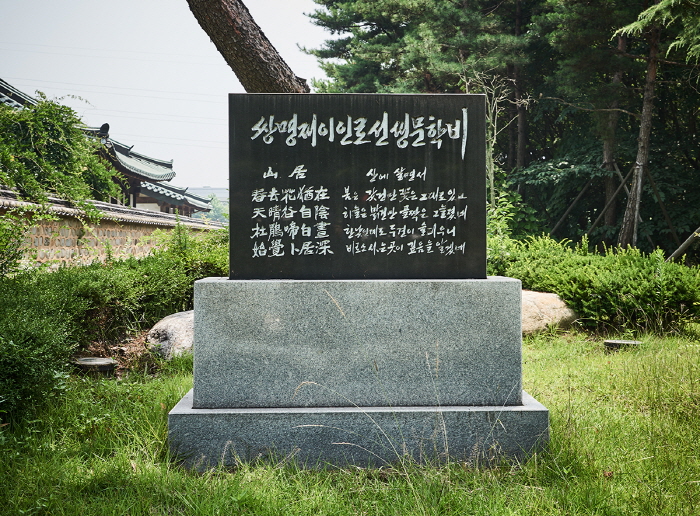 쌍명재이인로선생문학비
山居
春去花猶在
天晴谷自陰
杜鵑啼白晝
始覺卜居深
산에 살면서
봄은 갔건만 꽃은 그대로 있고
하늘은 밝건만 골짝은 그늘졌네
한낮인데도 두견이
비로소 사는곳이 깊음을 알겠네